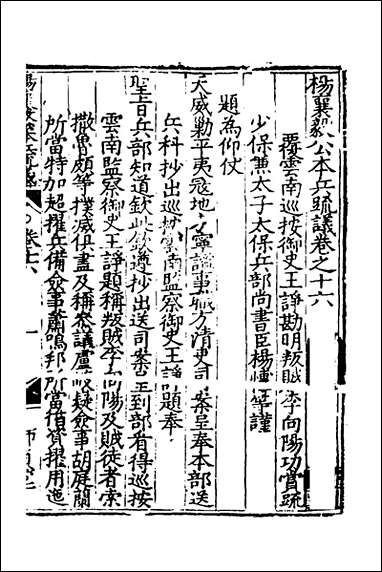 楊襄毅公本兵疏議卷之十六
覆雲南巡按御史王諍勘明叛賊李向陽功賞疏
少保兼太子太保兵部尚書臣楊 等謹
題為仰仗
天威勦平夷寇地方寧謐事職方清吏司案呈奉本部送
兵科抄出巡按雲南監察御史王諍題奉
聖旨兵部知道欽此欽遵抄出送司案呈到部看得巡按
雲南監察御史王諍題稱叛賊李向陽及賊徒者索
撒魯頗等撲滅俱盡及稱參議盧 疑僉事胡庭蘭
所當特加超擢兵備僉事蕭鳴邦所當循資擢用迤